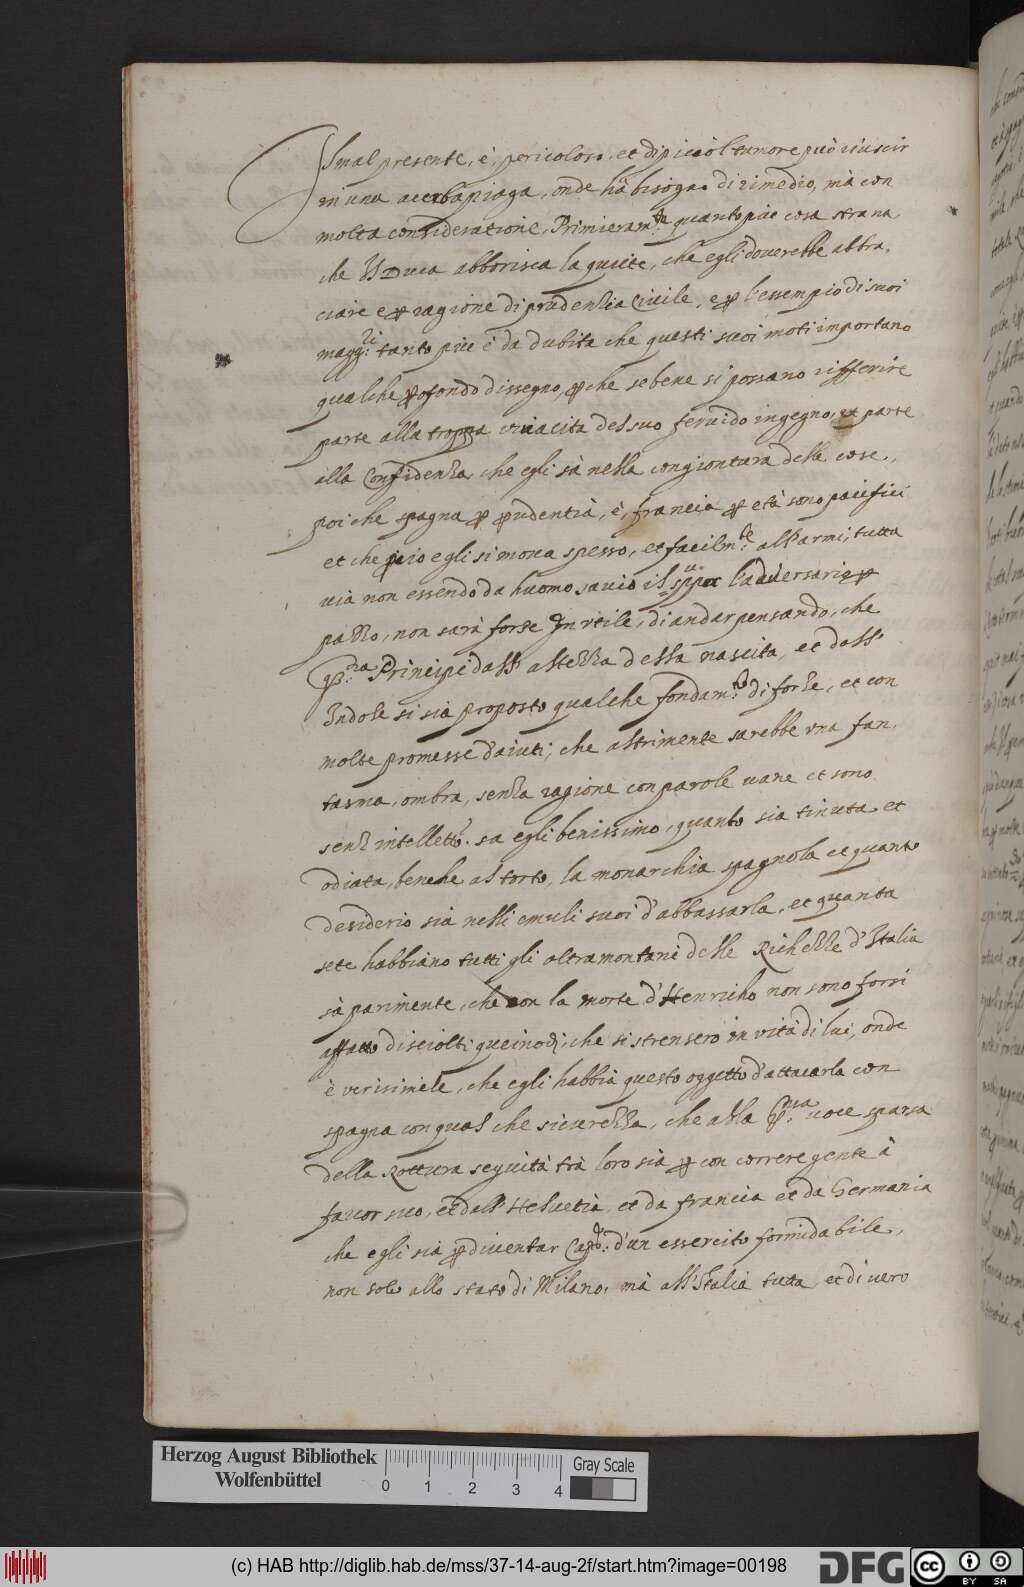 Il mal presente, è, pericoloso, et di picciol tumore può riuscir
in una acerba piaga, onde hà bisogno di rimedio, mà con
molta consideratione, Primieram.te quanto piu cosa strana
che Il Duca abborisca la quiete, che egli doverebbe abbra,
ciare e ꝑ ragione di prudenza Civile, e ꝑ l'essempio di suoi
magg.ri tanto piu è da dubita che questi suoi moti importano
qualche ꝓfondo dissegno, ꝑche sebene si possano rifferire
parte alla troppa vivacita del suo fervido ingegno, et parte
alla Confidenza, che egli sà nella congiontura delle cose,
poi che spagna ꝑ prudentia, è, francia ꝑ età sono pacifici
et che ꝑciò egli si mova spesso, et facilm.te all'armi; tutta
via non essendo da huomo savio il l'adversario ꝑ
pazzo, non sarà forse Inutile, di andar pensando, che
Principi dall' altezza della nascita, et dall'
Indole si sia proposto qualche fondam.to di forze, et con
molte promesse d'aiuti; che altrimente sarebbe una fan,
tasma, ombra, senza ragione con parole vane et sono
senz'intelletto. sa egli benissimo, quanto sia tinuta et
odiata, benche al torto, la monarchia spagnola et quanto
desiderio sia nelli emuli suoi d'abbassarla, et quanta
sete habbiano tutti gli oltramontani delle Richezze d'Italia
sà parimente, che con la morte d'Henricho non sono forsi
affatto disciolti quei nodi, che si strensero in vita di lui, onde
è verisimile, che egli habbia questo oggetto d'attacarla con
spagna con qual che sicurezza, che alla voce sparsa
della Rottura seguità trà loro sià ꝑ con correre gente à
favor suo, et dall' Helvetia, et da francia et da Germania
che egli sia ꝑ diventar Capo d'un essercito formidabile,
non solo allo stato di Milano, mà all'Italia tutta, et di vero
Herzog August Bibliothek
Wolfenbüttel
0 1 2 3 4
Gray Scale
(c) HAB http://diglib.hab.de/mss/37-14-aug-2f/start.htm?image=00198
DFG
cc BY SA